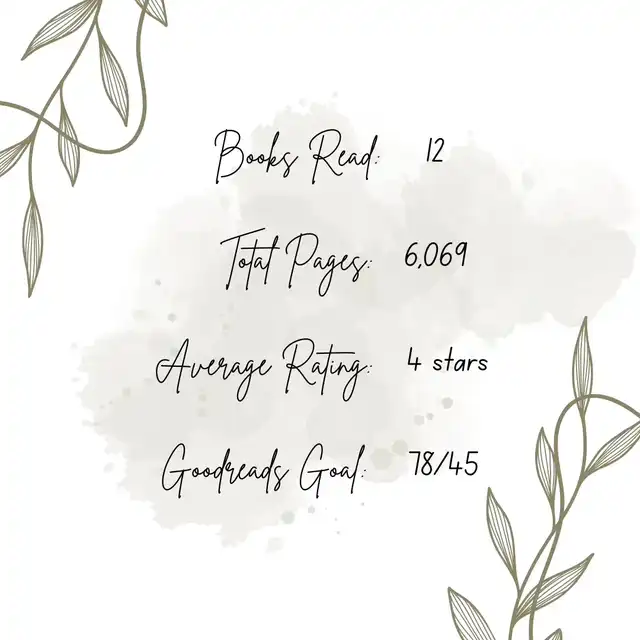 Books Read: 12
Total Pages: 6,069
Average Rating: 4 stars
Goodreads Goal: 78/45